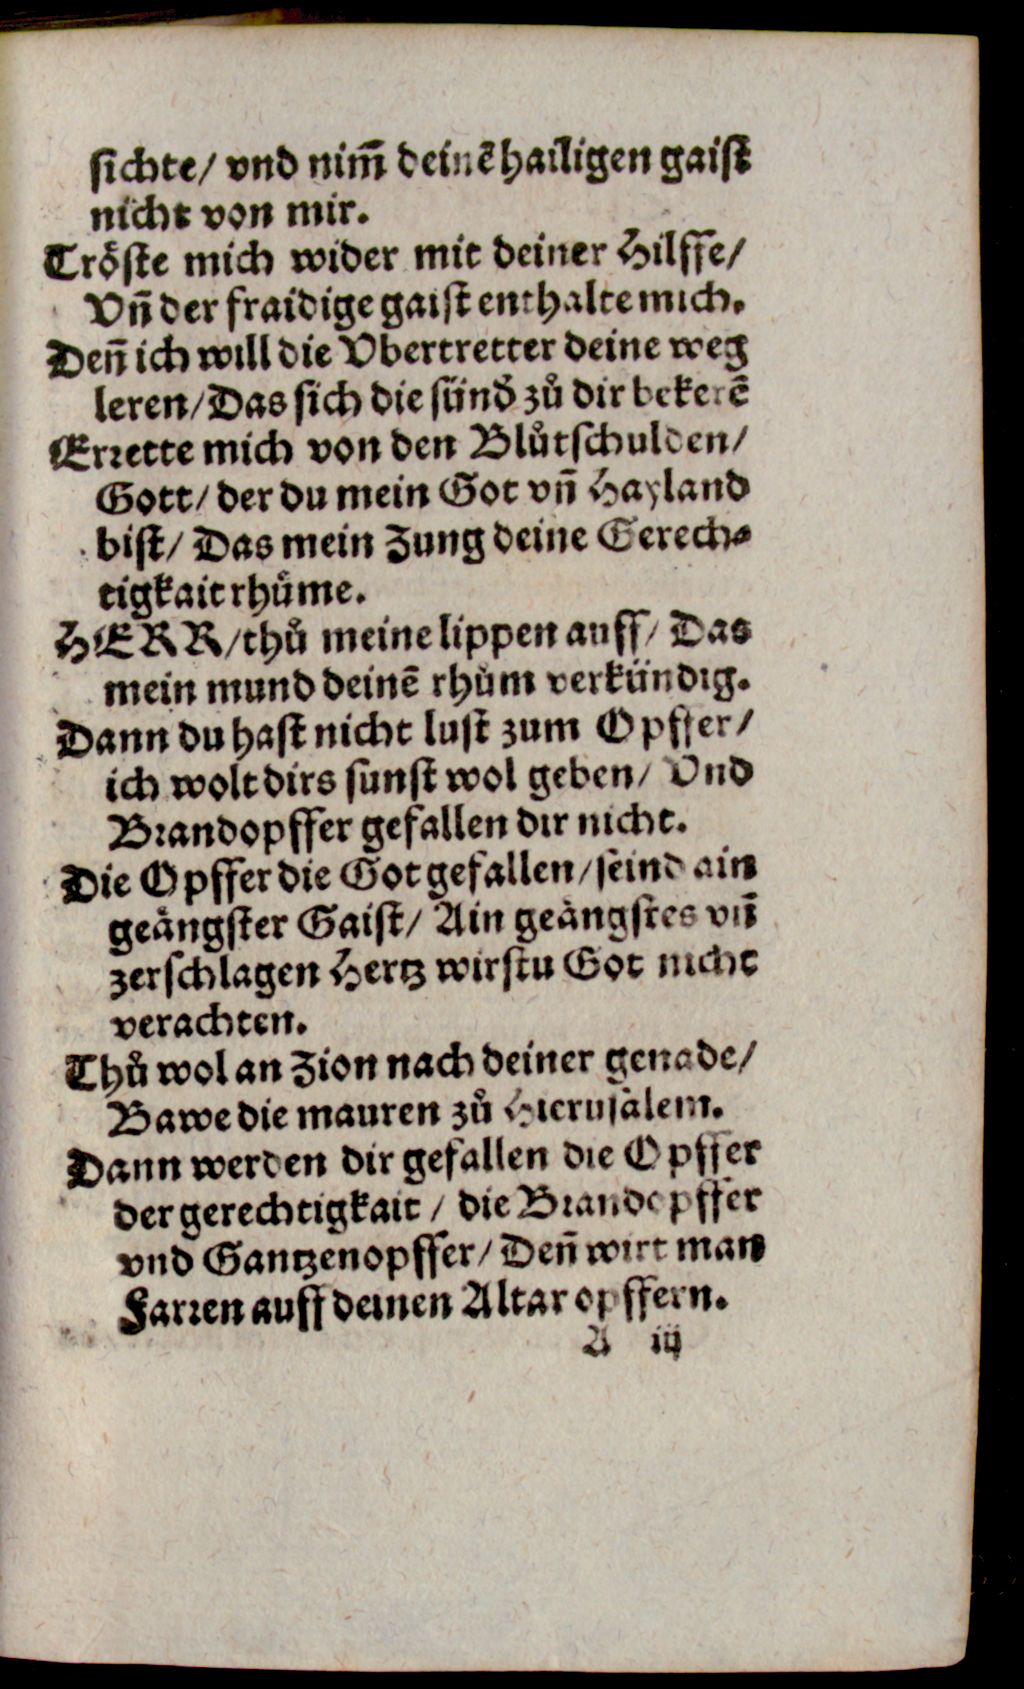 sichte/ vnd nim̃ deinẽ hailigen gaist
nicht von mir.
Tröste mich wider mit deiner Hilffe/
Vñ der fraidige gaist enthalte mich.
Deñ ich will die Vbertretter deine weg
leren/ Das sich die sünd̕ zů dir bekerẽ
Errette mich von den Blůtschulden/
Gott/ der du mein Got vñ Hayland
bist/ Das mein Zung deine Gerech⸗
tigkait rhůme.
HERR/ thů meine lippen auff/ Das
mein mund deinẽ rhům verkündig.
Dann du hast nicht lust zum Opffer/
ich wolt dirs sunst wol geben/ Vnd
Brandopffer gefallen dir nicht.
Die Opffer die Got gefallen/ seind ain
geängster Gaist/ Ain geängstes vñ
zerschlagen Hertz wirstu Got nicht
verachten.
Thů wol an Zion nach deiner genade/
Bawe die mauren zů Hierusalem.
Dann werden dir gefallen die Opffer
der gerechtigkait / die Brandopffer
vnd Gantzenopffer/ Deñ wirt man
Farren auff deinen Altar opffern.
A iij